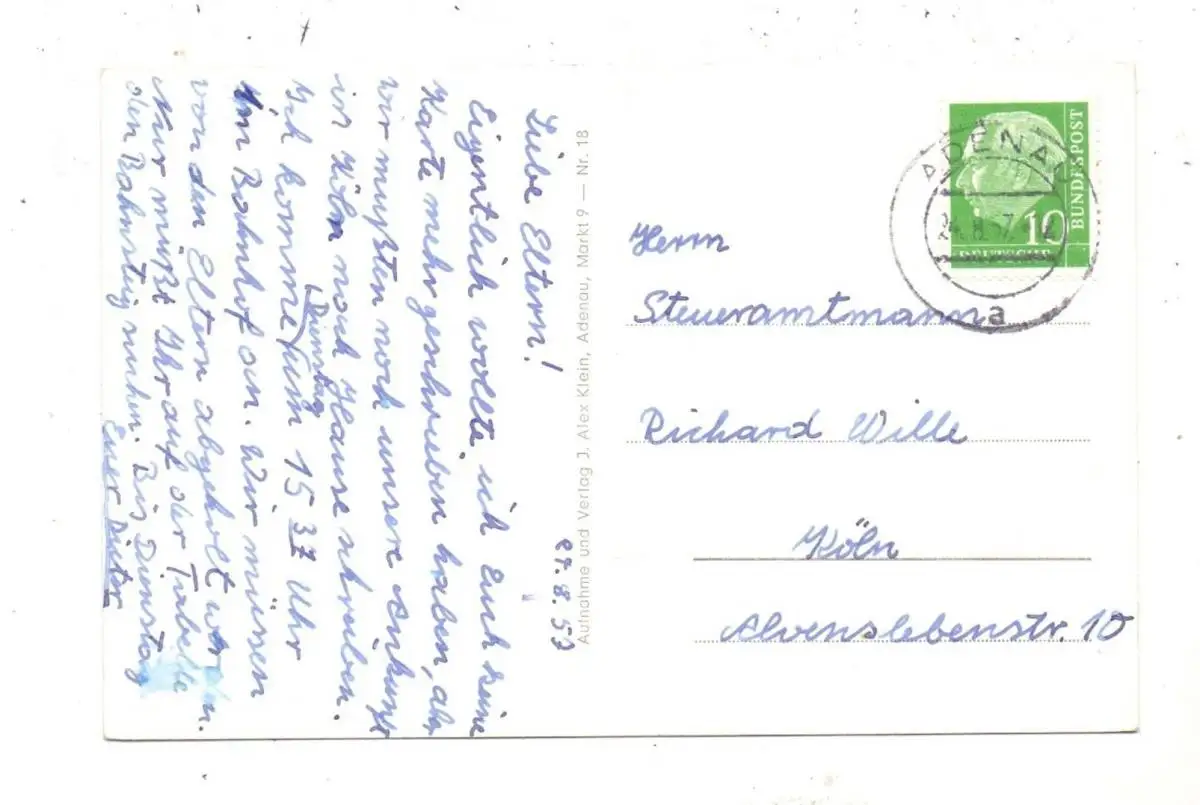 24.8.57
Liebe Eltern!
Eigentlich wollte ich Euch keine
Karte mehr geschrieben haben, aber
wir mußten noch unsere Ankunft
in Köln nach Hause schreiben.
Ich komme (Dienstag) um 15 37 Uhr
Am Bahnhof an. Wir müssen
von den Eltern abgeholt werden.
Nur müßt Ihr auf der Tabelle
den Bahnsteig suchen. Bis Dienstag
Euer Dieter
Aufnahme und Verlag J. Alex Klein, Adenau, Markt 9 — Nr. 18
ADENAU
24.8.57
a
10
DEUTSCHE
BUNDESPOST
Herrn
Steueramtmann
Richard Wille
Köln
Alvenslebenstr. 10